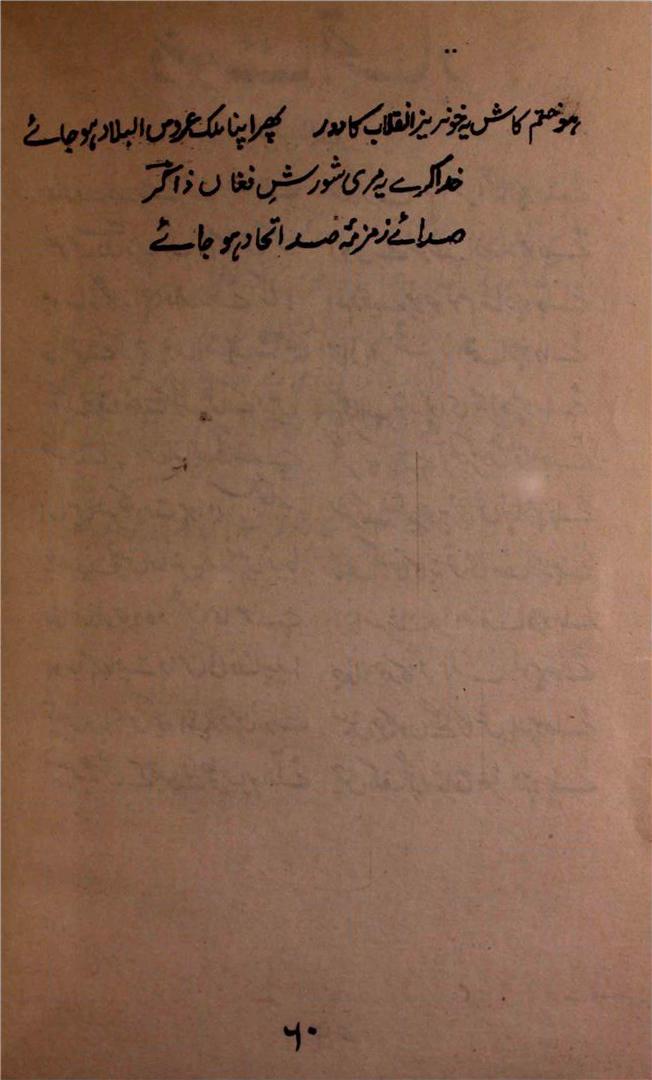 ہو ختم کاش یہ خونریز انقلاب کا دور پھر اپنا ملک عروس البلاد ہو جائے
خدا کرے یہ مری شورشِ فغاں ذاکر
صدائے زمزمۂ صد اتحاد ہو جائے
۶۰